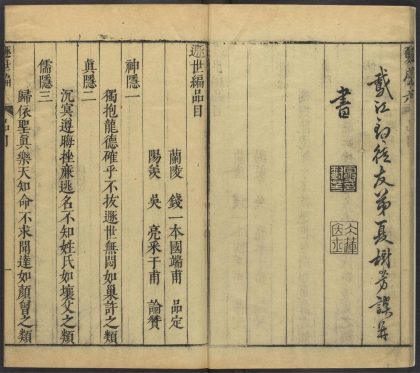 戴江釣徒友弟夏樹芳譔并
書
遯世編品目
蘭陵 錢一本國端甫 品定
陽羨 吳 亮采于甫 論贊
神隱一
獨抱龍德確乎不拔遯世無悶如巢許之類
真隱二
沉冥遵晦挫廉逃名不知姓氏如壤父之類
儒隱三
歸依聖真樂天知命不求聞達如顏曾之類
遯世編 品目 一